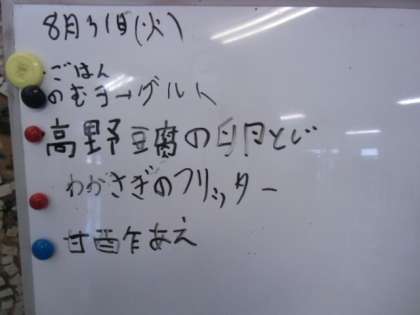 8月31日(火)
・ごはん
のむヨーグルト
高野豆腐の卵とじ
わかさぎのフリッター
甘酢あえ